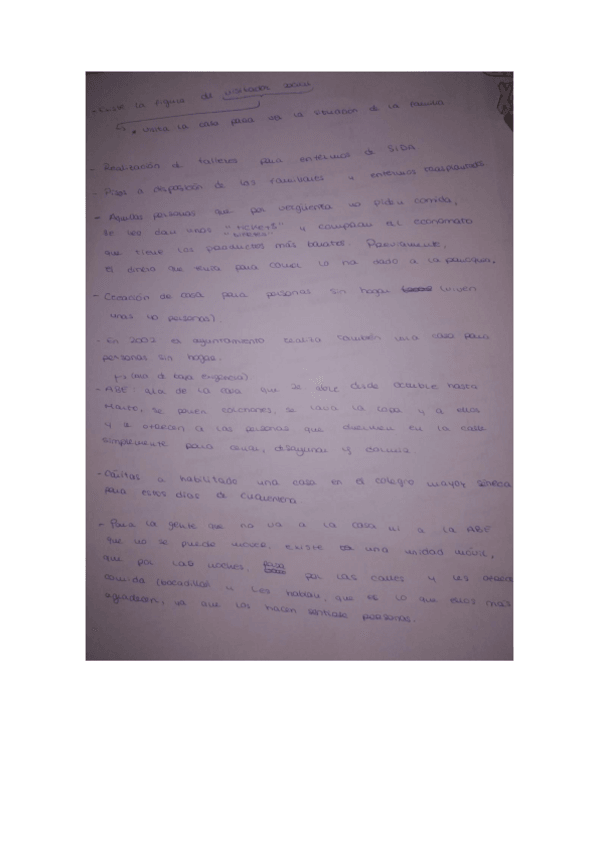 - Existe la figura del visitador social
↳ • visita la casa para ver la situación de la familia
- Realización de talleres para enfermos de SIDA
- Pisos a disposición de los familiares y enfermos trasplantados
- Aquellas personas que por vergüenza no piden comida,
se les dan unos "TICKETS" y compran en el economato
que tiene los productos más baratos. Previamente,
el dinero que para comer lo ha dado a la parroquia.
- Creación de casa para personas sin hogar (viven
unas 40 personas).
- En 2002 el ayuntamiento realiza también una casa para
personas sin hogar.
(área de baja exigencia)
- ABE: ala de la casa que se abre desde octubre hasta
Marzo, se ponen colchones, se lava la ropa y a ellos
y se ofrecen a las personas que duermen en la calle
simplemente para cenar, desayunar y dormir.
- Cáritas a habilitado una casa en el colegio mayor Séneca
para estos días de cuarentena.
- Para la gente que no va a la casa ni a la ABE
que no se puede mover, existe una unidad móvil,
que por las noches, pasa por las calles y les ofrece
comida (bocadillos) y les hablan, que es lo que ellos más
agradecen, ya que los hacen sentirse personas.